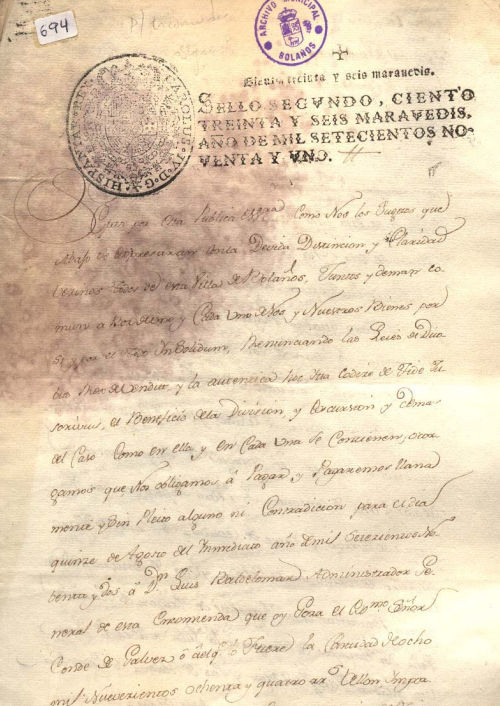 694
ARCHIVO MUNICIPAL
BOLAÑOS
CAROLUS IV D G HISPANIAR REX
Ciento treinta y seis maravedis.
SELLO SEGVNDO, CIENTO
TREINTA Y SEIS MARAVEDIS,
AÑO DE MIL SETECIENTOS NO-
VENTA Y VNO.
por esta publica Como Nos los Sugetos que
Abajo se expresaran con la Devida Distincion y Claridad
vecinos de esta Villa de Bolaños, Juntos y de man co
mun a voz de uno y Cada uno de Nos y Nuestros Bienes por
si y por el todo Insolidum, Renunciando las Leies de Duo
bus Rex devendi y la autentica hoc Ita Codice de Fide Ju
soribus, el Beneficio de la Division, y Excursion y demas
del Caso Como en ella y en Cada una se Contienen, otor
gamos que Nos obligamos â Pagar y Pagaremos llana
mente y sin Pleito alguno ni Contradicion para el dia
quinze de Agosto del Inmediato año de mil Setezientos No
benta y dos â Dn Luis Administrador Ge
neral de esta Encomienda que oy Goza el Exmo Señor
Conde de Galvez ô â elqe lo Fuere la Cantidad de ocho
mil Nuevezientos ochenta y quatro Vellon Impor